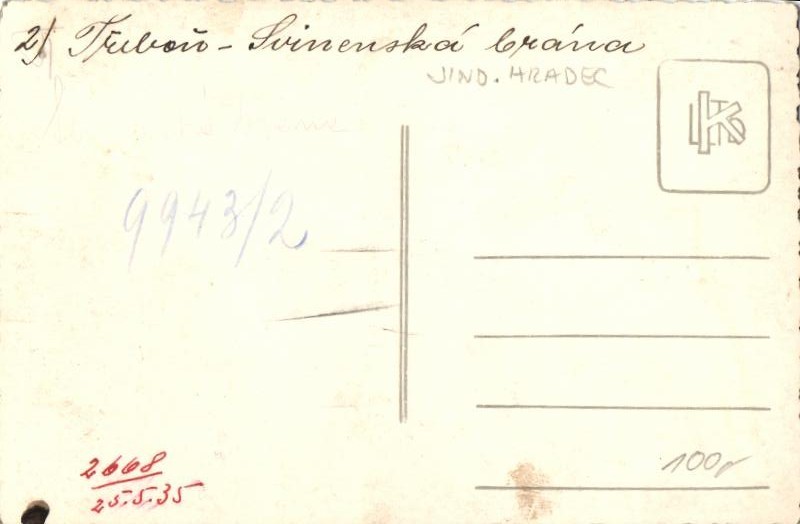 2) Třeboň - Svinenská brána
JIND. HRADEC
9943/2
2668
25.5.35
100,-